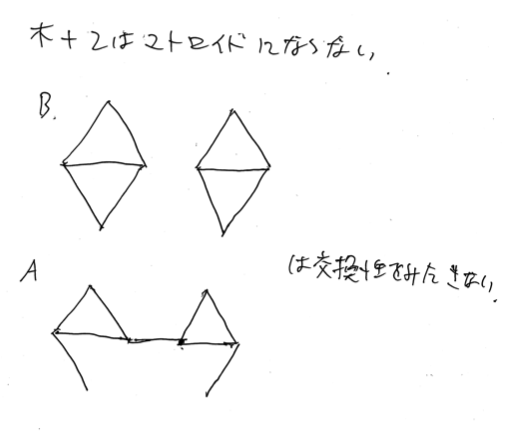 木+2はマトロイドにならない.
B.
A
は交換性をみたさない.